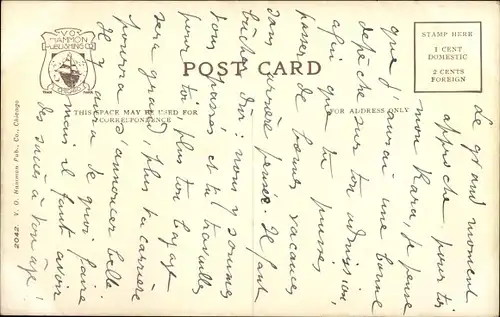 V·O·
HAMMON
PUBLISHING CO
CHICAGO
POST CARD
THIS SPACE MAY BE USED FOR
CORRESPONDENCE
FOR ADDRESS ONLY
STAMP HERE
1 CENT
DOMESTIC
2 CENTS
FOREIGN
2042 V. O. Hammon Pub. Co., Chicago
Le grand moment
approche pour toi
mon Kara, je pense
que j'aurai une bonne
dépêche sur ton admission,
afin que tu puisses
passer de bonnes vacances
sans arrière pensée. Il faut
bûcher dur : nous y sommes
tous passés et tu travailles
pour toi, plus ton bagage
sera grand, plus ta carrière
pourra s'annoncer belle
Il y aura de quoi faire
mais il faut avoir
des à ton âge !